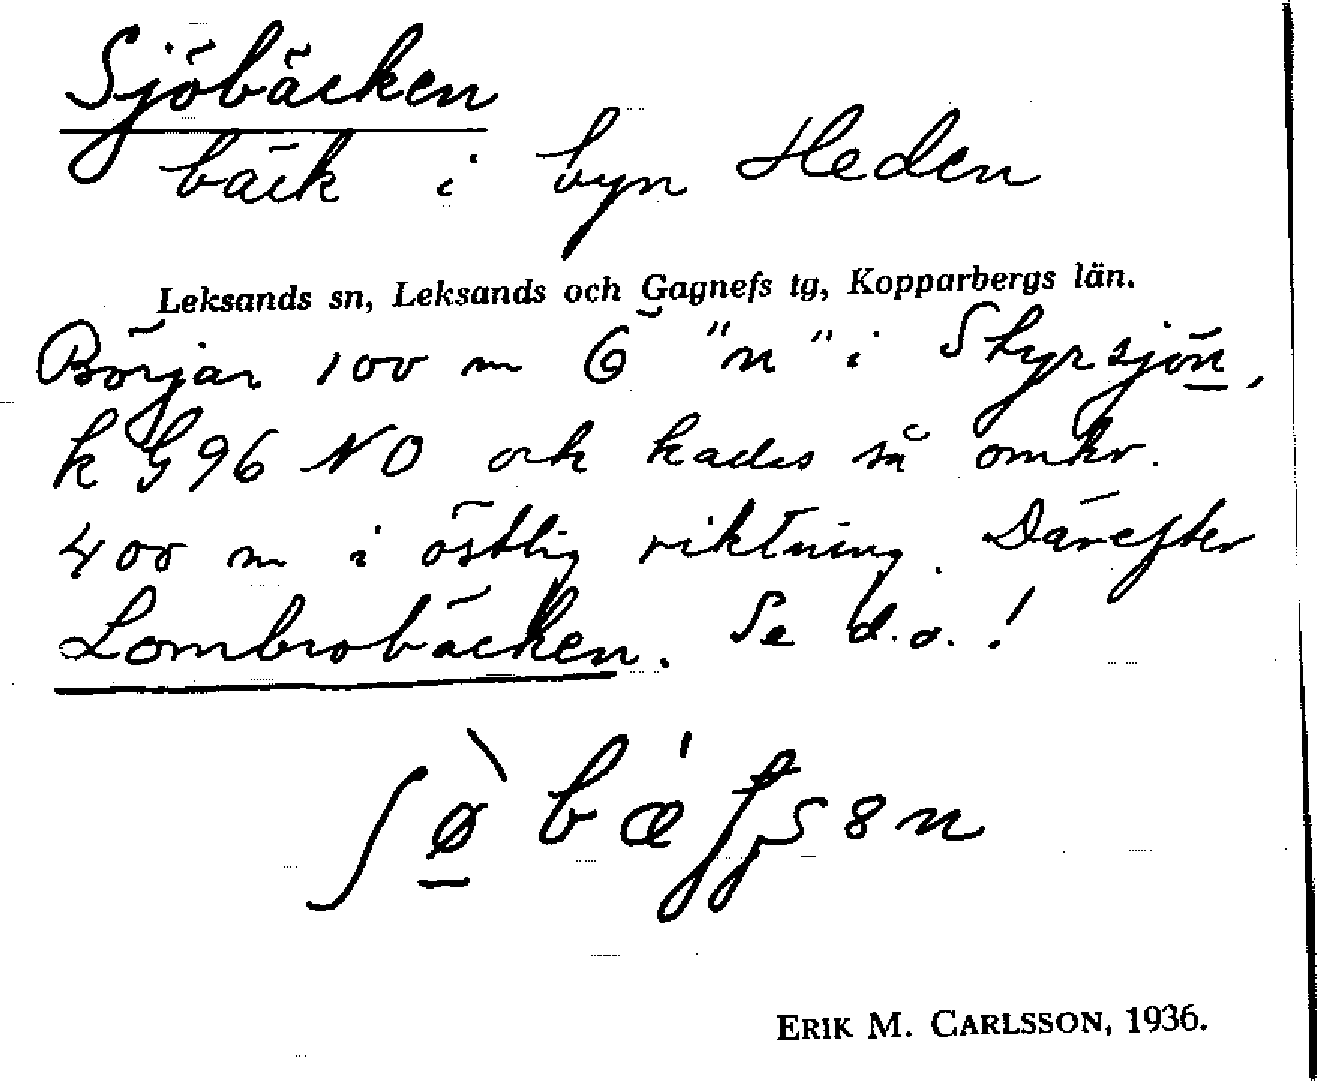 Sjöbäcken
bäck i byn Heden
Leksands sn, Leksands och Gagnefs tg, Kopparbergs län.
Börjar 100 m Ö "n" i Styrsjön,
k G96 NO och kallas så omkr.
400 m i östlig riktning. Därefter
Lombrobäcken. Se d.o.!
ERIK M. CARLSSON, 1936.